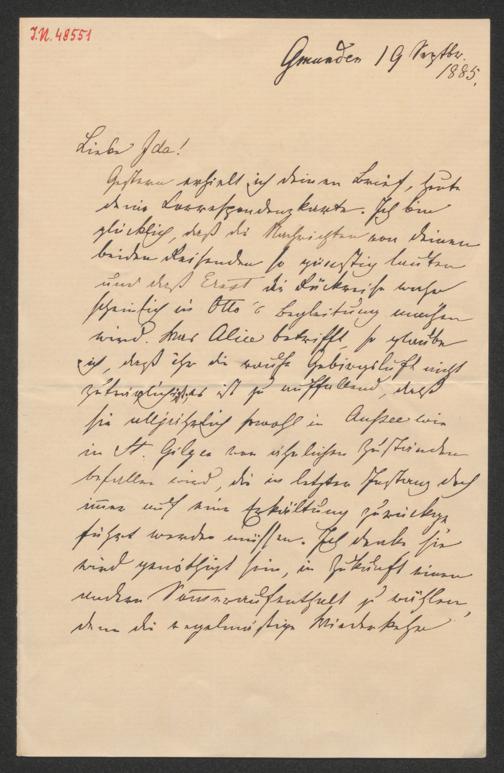 J.N. 48551
Gmunden 19 Septbr.
1885.
Liebe Ida!
Gestern erhielt ich deinen Brief, heute
deine Correspondenzkarte. Ich bin
glücklich, daß die Nachrichten von deinen
beiden Reisenden so günstig lauten
und daß Ernst die Rückreise wahr
scheinlich in Otto's Begleitung machen
wird. Was Alice betrifft, so glaube
ich, daß ihr die rauhe Gebirgsluft nicht
zuträglich ist, es ist zu auffallend, daß
sie alljährlich sowohl in Aussee wie
in St. Gilgen von ähnlichen Zuständen
befallen wird, die in letzter Instanz doch
immer auf eine Erkältung zurückge
führt werden müssen. Ich denke sie
wird genöthigt sein, in Zukunft einen
andern Sommeraufenthalt zu wählen,
denn die regelmäßige Wiederkehr